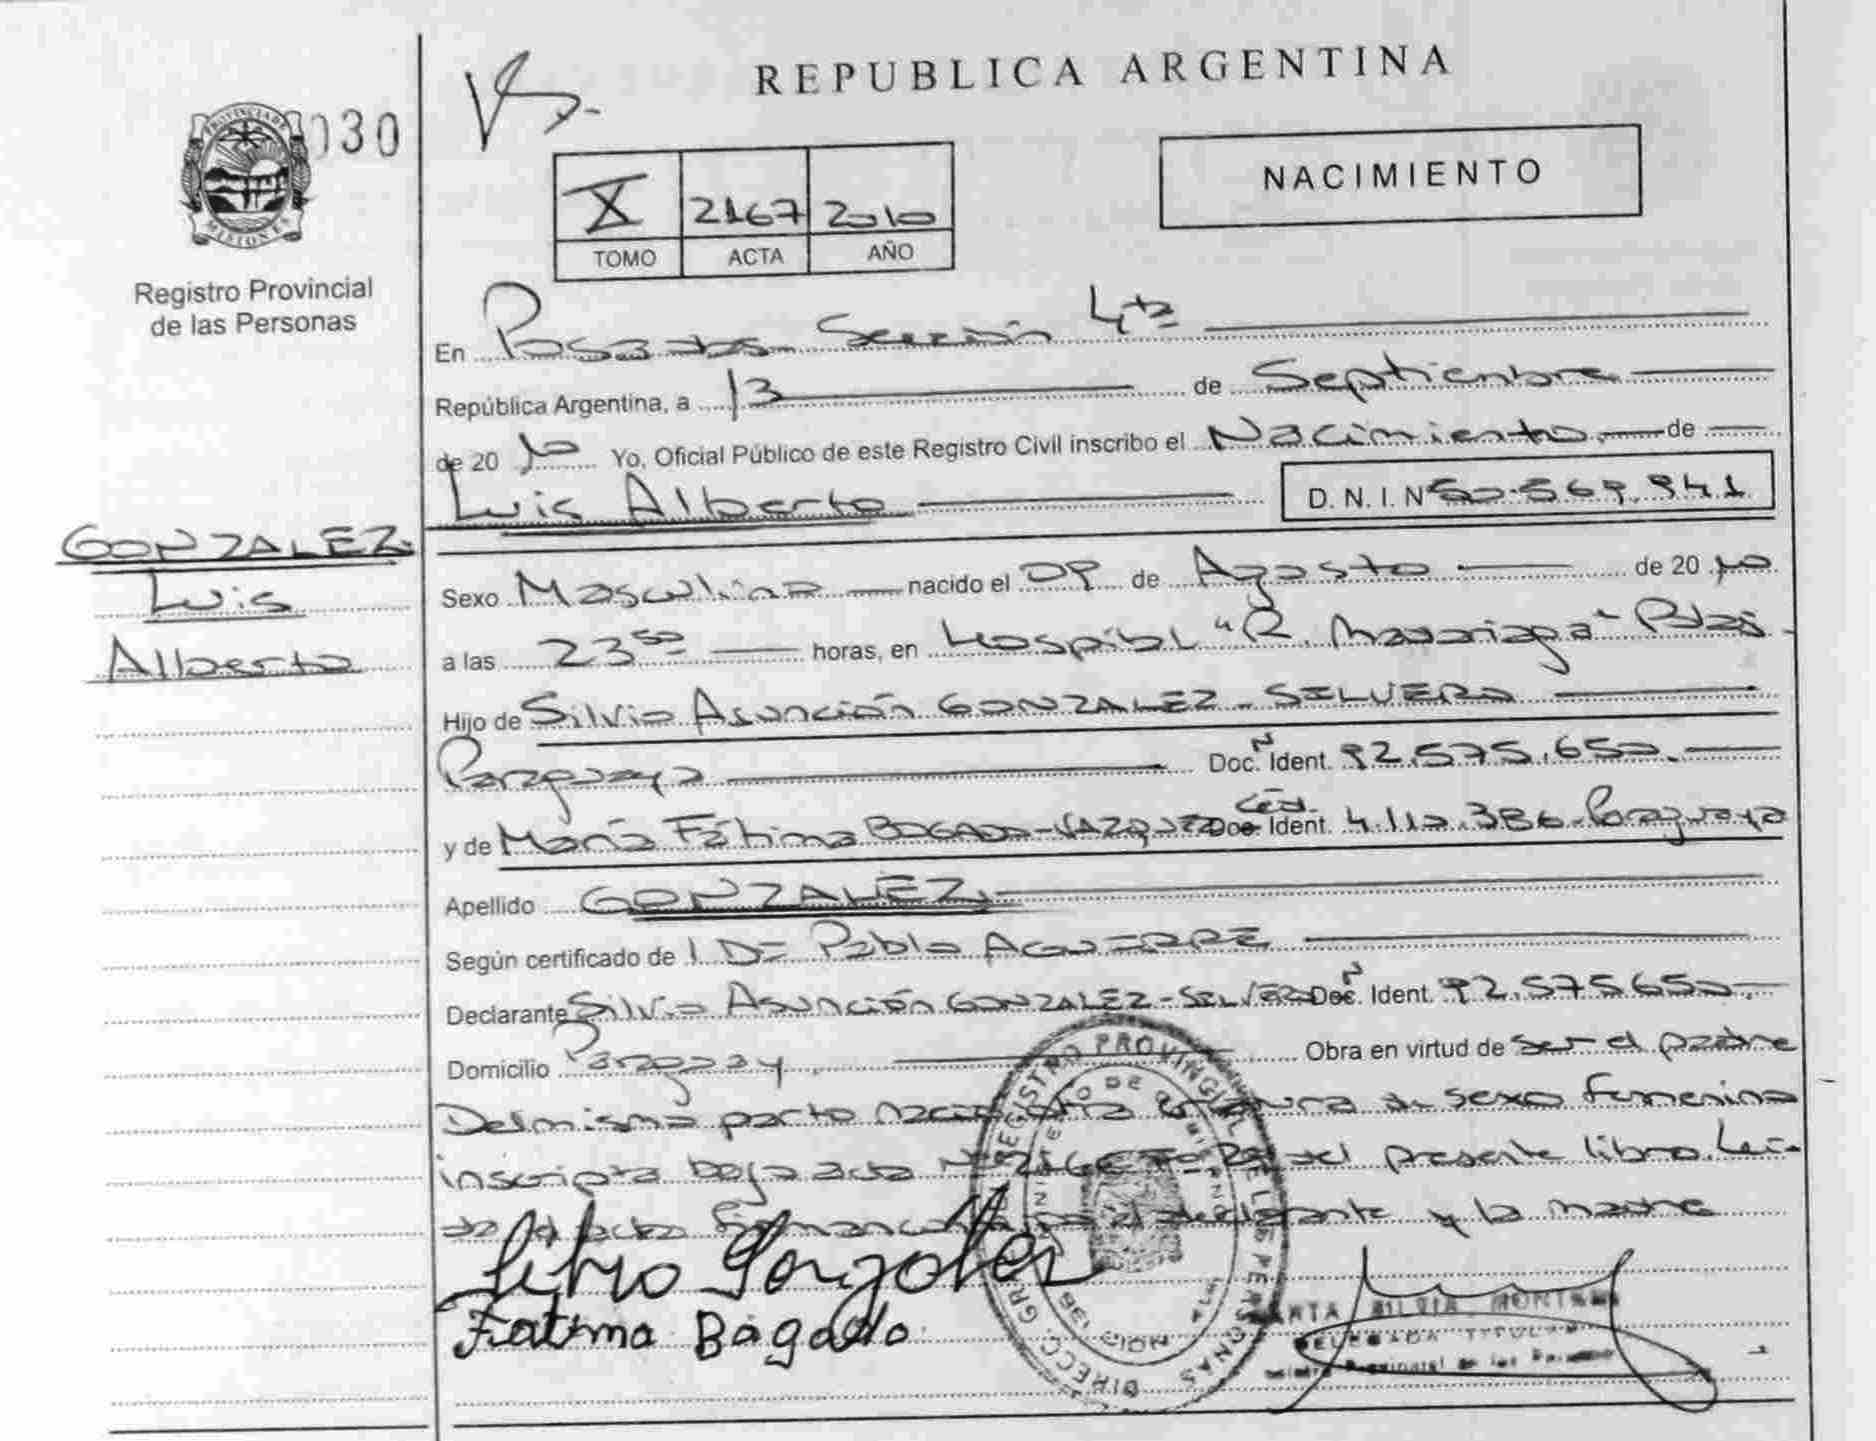 REPUBLICA ARGENTINA
PROVINCIA DE
MISIONES
030
Registro Provincial
de las Personas
X 2167 2010
TOMO ACTA AÑO
NACIMIENTO
En Posadas Sección 4ta
República Argentina, a 13 de Septiembre
de 2010 Yo, Oficial Público de este Registro Civil inscribo el Nacimiento de
Luis Alberto D. N. I. N 50.569.941
GONZALEZ
Luis
Alberto
Sexo Masculino nacido el 09 de Agosto de 2010
a las 23 50 horas, en Hospital "R. Madariaga" Pdas.
Hijo de Silvio Asunción GONZALEZ - SILVERO
Paraguayo Doc. Ident. 92.575.650.
y de María Fátima BOGADO-VAZQUEZ Céd. Doc. Ident. 4.110.386 Paraguaya
Apellido GONZALEZ
Según certificado de Pablo AGUIRRE
Declarante Silvio Asunción GONZALEZ-SILVERO Doc. Ident. 92.575650.-
Domicilio Paraguay. Obra en virtud de ser el padre
Del mismo parto nació otra criatura de sexo femenino
inscripta bajo acta del presente libro. Leí-
da el acta firman el declarante y la madre
Silvio Gonzalez
Fatima Bogado
REGISTRO PROVINCIAL DE LAS PERSONAS
DELEGADA TITULAR
Registro Provincial de las Personas